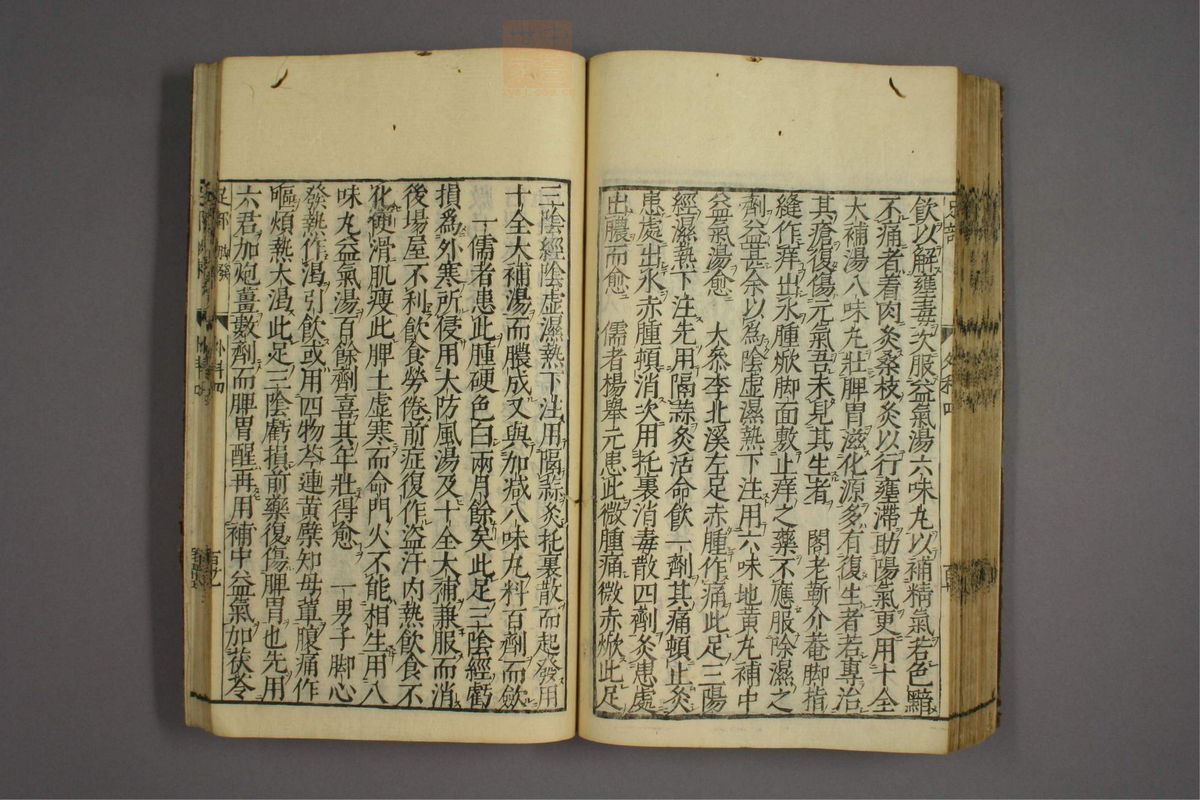 飲以解壅毒次服益氣湯六味丸以補精氣若色黯
不痛者着肉灸桑枝灸以行壅滯助陽氣更用十全
大補湯八味丸壯脾胃滋化源多有復生者若專治
其瘡復傷元氣吾未見其生者　閣老靳介菴脚指
縫作痒出水腫焮脚面敷止痒之藥不應服除濕之
劑益甚余以爲陰虛濕熱下注用六味地黃丸補中
益氣湯愈　大叅李北溪左足赤腫作痛此足三陽
經濕熱下注先用隔蒜灸活命飲一劑其痛頓止灸
患處出水赤腫頓消次用托裏消毒散四劑灸患處
出膿而愈　儒者楊舉元患此微腫痛微赤焮此足
三陰經陰虛濕熱下注用隔蒜灸托裏散而起發用
十全大補湯而膿成又與加減八味丸料百劑而斂
一儒者患此腫硬色白兩月餘矣此足三陰經虧
損爲外寒所侵用大防風湯及十全大補兼服而消
後場屋不利飲食勞倦前症復作盜汗内熱飲食不
化便滑肌瘦此脾土虛寒而命門火不能相生用八
味丸益氣湯百餘劑喜其年壯得愈　一男子脚心
發熱作渴引飲或用四物芩連黃蘗知母輩腹痛作
嘔煩熱大渴此足三陰虧損前藥復傷脾胃也先用
六君加炮薑數劑而脾胃醒再用補中益氣加茯苓
足部
外科四